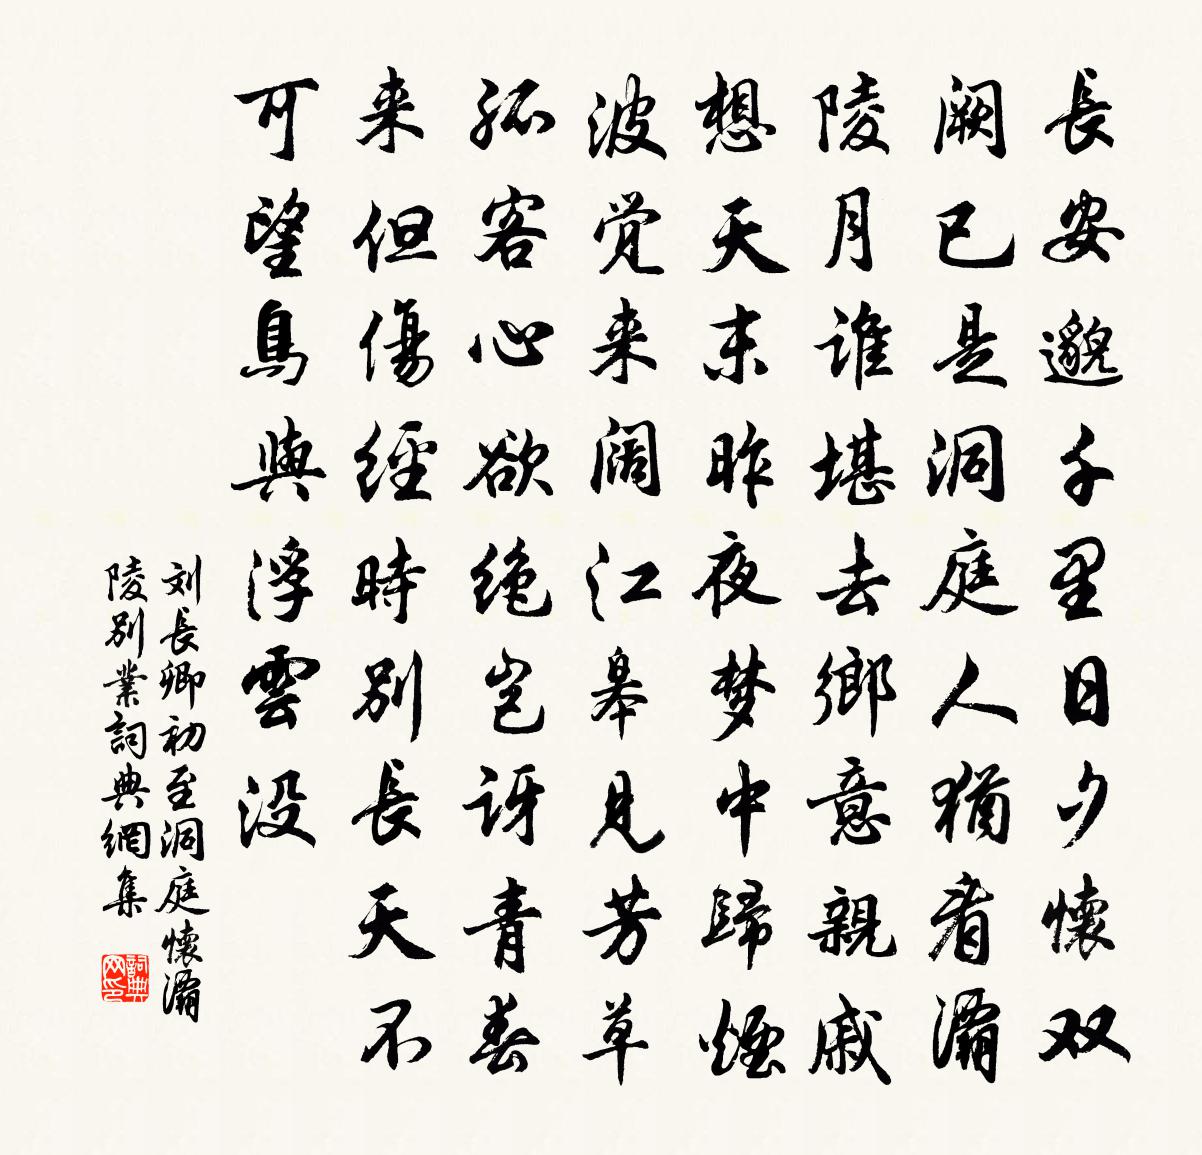 長安邈千里日夕懷双
闕已是洞庭人猶看灞
陵月谁堪去鄉意親戚
想天末昨夜梦中歸煙
波觉来阔江皋見芳草
孤客心欲绝岂讶青春
来但傷經時别長天不
可望鳥與浮雲没
刘長卿初至洞庭懷灞
陵别業詞典網集
詞典网印